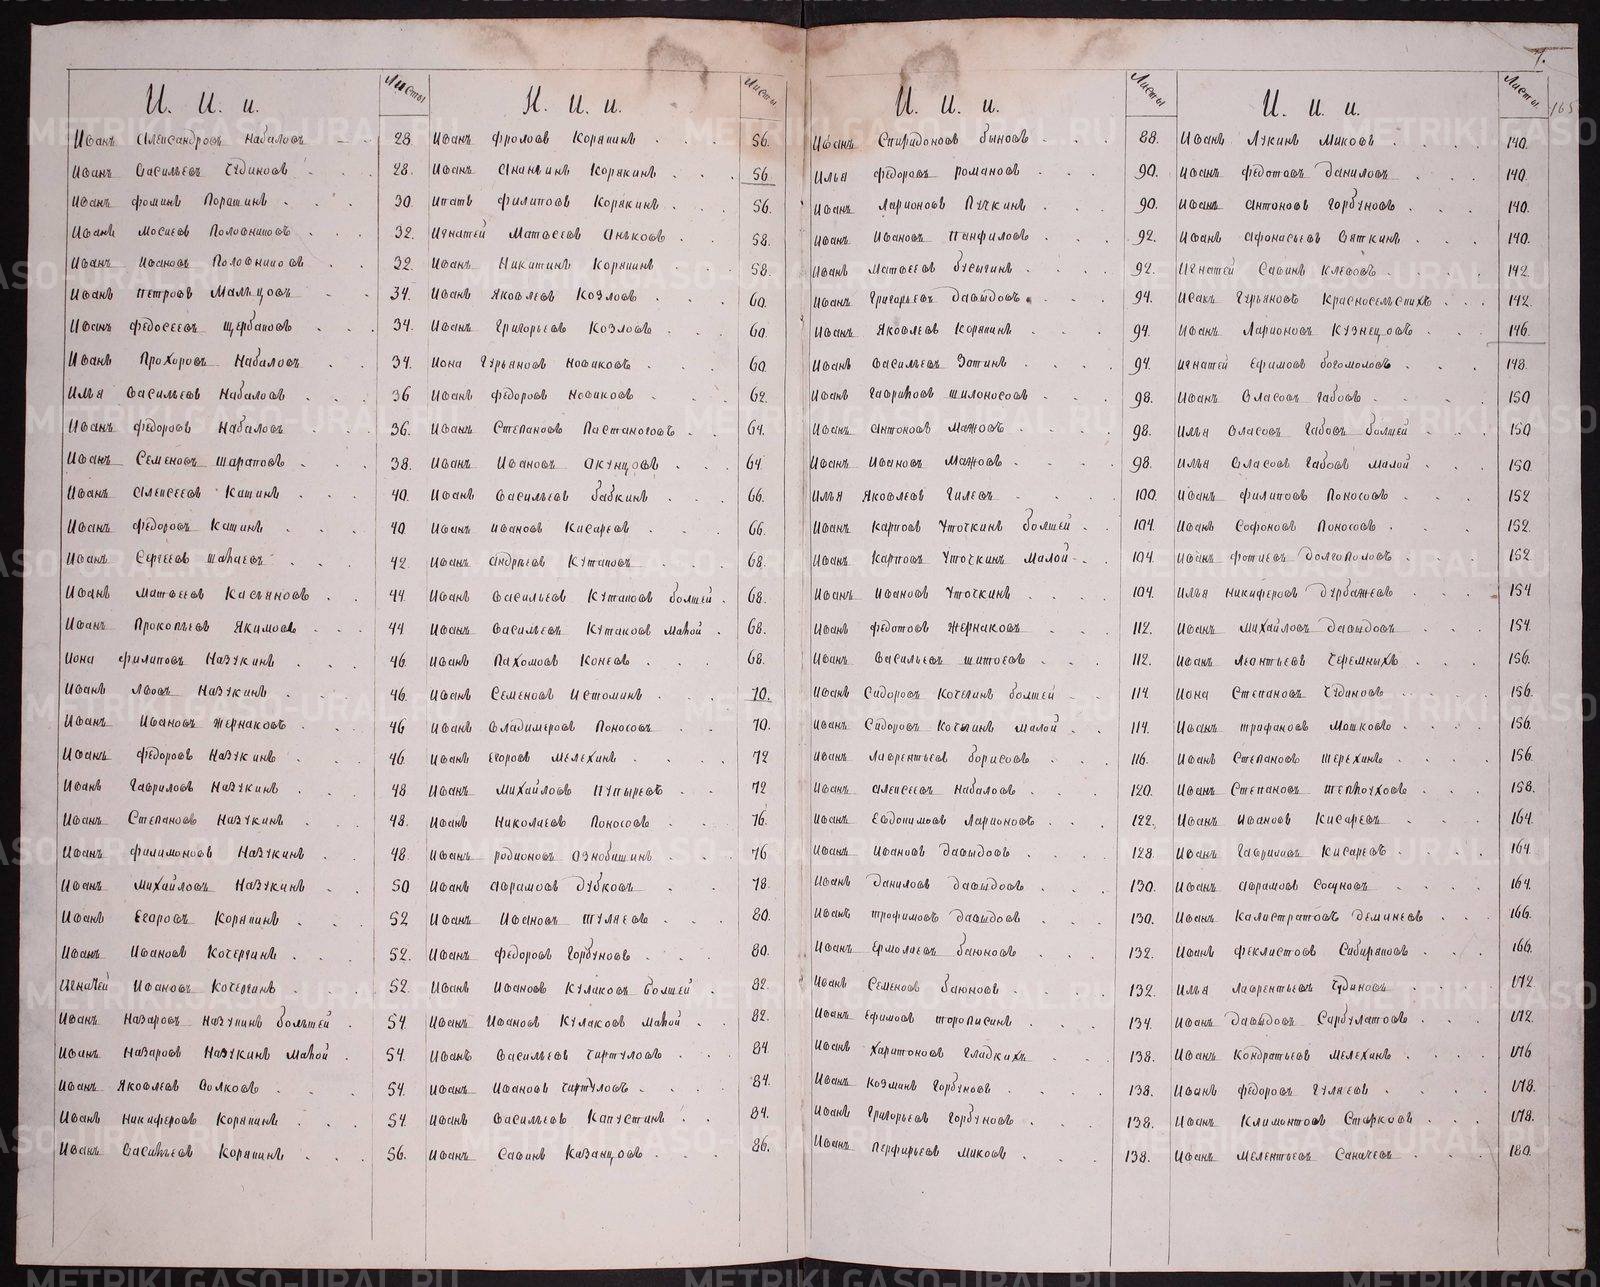 7.
165
И. И. и.
Листы
Иванъ Александровъ Набаловъ 28
Иванъ Васильевъ Чудиновъ 28.
Иванъ Фоминъ Порашинъ 30
Иванъ Мосиевъ Половниковъ 32.
Иванъ Ивановъ Половниковъ 32.
Иванъ Петровъ Мальцовъ 34.
Иванъ Федосеевъ Щербаковъ 34.
Иванъ Прохоровъ Набаловъ 34.
Илья Васильевъ Набаловъ 36
Иванъ Федоровъ Набаловъ 36.
Иванъ Семеновъ Шараповъ 38.
Иванъ Алексеевъ Катинъ 40.
Иванъ Федоровъ Катинъ 40
Иванъ Сергеевъ 42
Иванъ Матвеевъ Касьяновъ 44
Иванъ Прокопьевъ Якимовъ 44
Иона Филиповъ Назукинъ 46
Иванъ Львовъ Назукинъ 46.
Иванъ Ивановъ Жернаковъ 46
Иванъ Федоровъ Назукинъ 46
Иванъ Гавриловъ Назукинъ 48
Иванъ Степановъ Назукинъ 48.
Иванъ Филимоновъ Назукинъ 48
Иванъ Михайловъ Назукинъ 50
Иванъ Егоровъ Корякинъ 52
Иванъ Ивановъ Кочергинъ 52.
Игнатей Ивановъ Кочергинъ 52
Иванъ Назаровъ Назукинъ большей 54
Иванъ Назаровъ Назукинъ малой 54.
Иванъ Яковлевъ Волковъ 54
Иванъ Никифоровъ Корякинъ 54
Иванъ Васильевъ Корякинъ 56.
И. И. и.
Листы
Иванъ Фроловъ Корякинъ 56.
Иванъ Ананьинъ Корякинъ 56
Ипатъ Филиповъ Корякинъ 56.
Игнатей Матвеевъ Аньковъ 58.
Иванъ Никитинъ Корякинъ 58.
Иванъ Яковлевъ Козловъ 60
Иванъ Григорьевъ Козловъ 60.
Иона Гурьяновъ Новиковъ 60
Иванъ Федоровъ Новиковъ 62.
Иванъ Степановъ Пастаноговъ 64.
Иванъ Ивановъ Акунцовъ 64
Иванъ Васильевъ Бабкинъ 66.
Иванъ Ивановъ Кисаревъ 66.
Иванъ Андреевъ Кутаковъ 68.
Иванъ Васильевъ Кутаковъ большей 68.
Иванъ Васильевъ Кутаковъ малой 68.
Иванъ Пахомовъ Коневъ 68.
Иванъ Семеновъ Истоминъ 70.
Иванъ Владимеровъ Поносовъ 70.
Иванъ Егоровъ Мелехинъ 72
Иванъ Михайловъ Пупыревъ 72
Иванъ Николаевъ Поносовъ 76.
Иванъ Родионовъ Ознобишинъ 76
Иванъ Аврамовъ Дубковъ 78.
Иванъ Ивановъ Туляевъ 80.
Иванъ Федоровъ Горбуновъ 80.
Иванъ Ивановъ Кулаковъ большей 82
Иванъ Ивановъ Кулаковъ малой 82.
Иванъ Васильевъ Чиртуловъ 84
Иванъ Ивановъ Чиртуловъ 84.
Иванъ Васильевъ Капустинъ 84.
Иванъ Савинъ Казанцовъ 86.
И. И. и.
Листы
Иванъ Спиридоновъ Быковъ 88.
Илья Федоровъ Романовъ 90.
Иванъ Ларионовъ Пучкинъ 90.
Иванъ Ивановъ Панфиловъ 92.
Иванъ Матвеевъ Бусыгинъ 92.
Иванъ Григорьевъ Давыдовъ 94.
Иванъ Яковлевъ Корякинъ 94.
Иванъ Васильевъ Зотинъ 94.
Иванъ Гавриловъ Шилоносовъ 98.
Иванъ Антоновъ Мажовъ 98.
Иванъ Ивановъ Мажовъ 98.
Илья Яковлевъ Гилевъ 100
Иванъ Карповъ Уточкинъ большей 104.
Иванъ Карповъ Уточкинъ малой 104.
Иванъ Ивановъ Уточкинъ 104.
Иванъ Федотовъ Жернаковъ 112.
Иванъ Васильевъ Шитоевъ 112.
Иванъ Сидоровъ Кочегинъ большей 114
Иванъ Сидоровъ Кочегинъ малой 114.
Иванъ Лаврентьевъ Борисовъ 116.
Иванъ Алексеевъ Набаловъ 120.
Иванъ Евдокимовъ Ларионовъ 122.
Иванъ Ивановъ Давыдовъ 128.
Иванъ Даниловъ Давыдовъ 130.
Иванъ Трофимовъ Давыдовъ 130.
Иванъ Ермолаевъ Баюновъ 132.
Иванъ Семеновъ Баюновъ 132.
Иванъ Ефимовъ Торописинъ 134.
Иванъ Харитоновъ Гладкихъ 138.
Иванъ Козминъ Горбуновъ 138.
Иванъ Григорьевъ Горбуновъ 138.
Иванъ Перфирьевъ Миковъ 138.
И. и. и.
Листы
Иванъ Лукинъ Миковъ 140.
Иванъ Федотовъ Даниловъ 140.
Иванъ Антоновъ Горбуновъ 140.
Иванъ Афонасьевъ Вяткинъ 140.
Игнатей Савинъ Клевовъ 142
Исакъ Гурьяновъ Красносельскихъ 142.
Иванъ Ларионовъ Кузнецовъ 146.
Игнатей Ефимовъ Богомоловъ 148.
Иванъ Власовъ Габовъ 150
Илья Власовъ Габовъ большей 150
Илья Власовъ Габовъ малой 150.
Иванъ Филиповъ Поносовъ 152
Иванъ Софоновъ Поносовъ 152.
Иванъ Фотиевъ Долгополовъ 152
Илья Никифоровъ Дурбажевъ 154
Иванъ Михайловъ Давыдовъ 154.
Иванъ Леонтьевъ Черемныхъ 156.
Иона Степановъ Чудиновъ 156.
Иванъ Трифановъ Мошковъ 156.
Иванъ Степановъ Терехинъ 156
Иванъ Степановъ Теплоуховъ 158.
Иванъ Ивановъ Кисаревъ 164.
Иванъ Гавриловъ Кисаревъ 164.
Иванъ Аврамовъ Сосуновъ 164.
Иванъ Калистратовъ Деминевъ 166.
Иванъ Феклистовъ Сибиряковъ 166.
Илья Лаврентьевъ Чудиновъ 172
Иванъ Давыдовъ Сарбулатовъ 172.
Иванъ Кондратьевъ Мелехинъ 176
Иванъ Федоровъ Гуляевъ 178.
Иванъ Климонтовъ Старковъ 178.
Иванъ Мелентьевъ Саначевъ 180.
METRIKI.GASO-URAL.RU